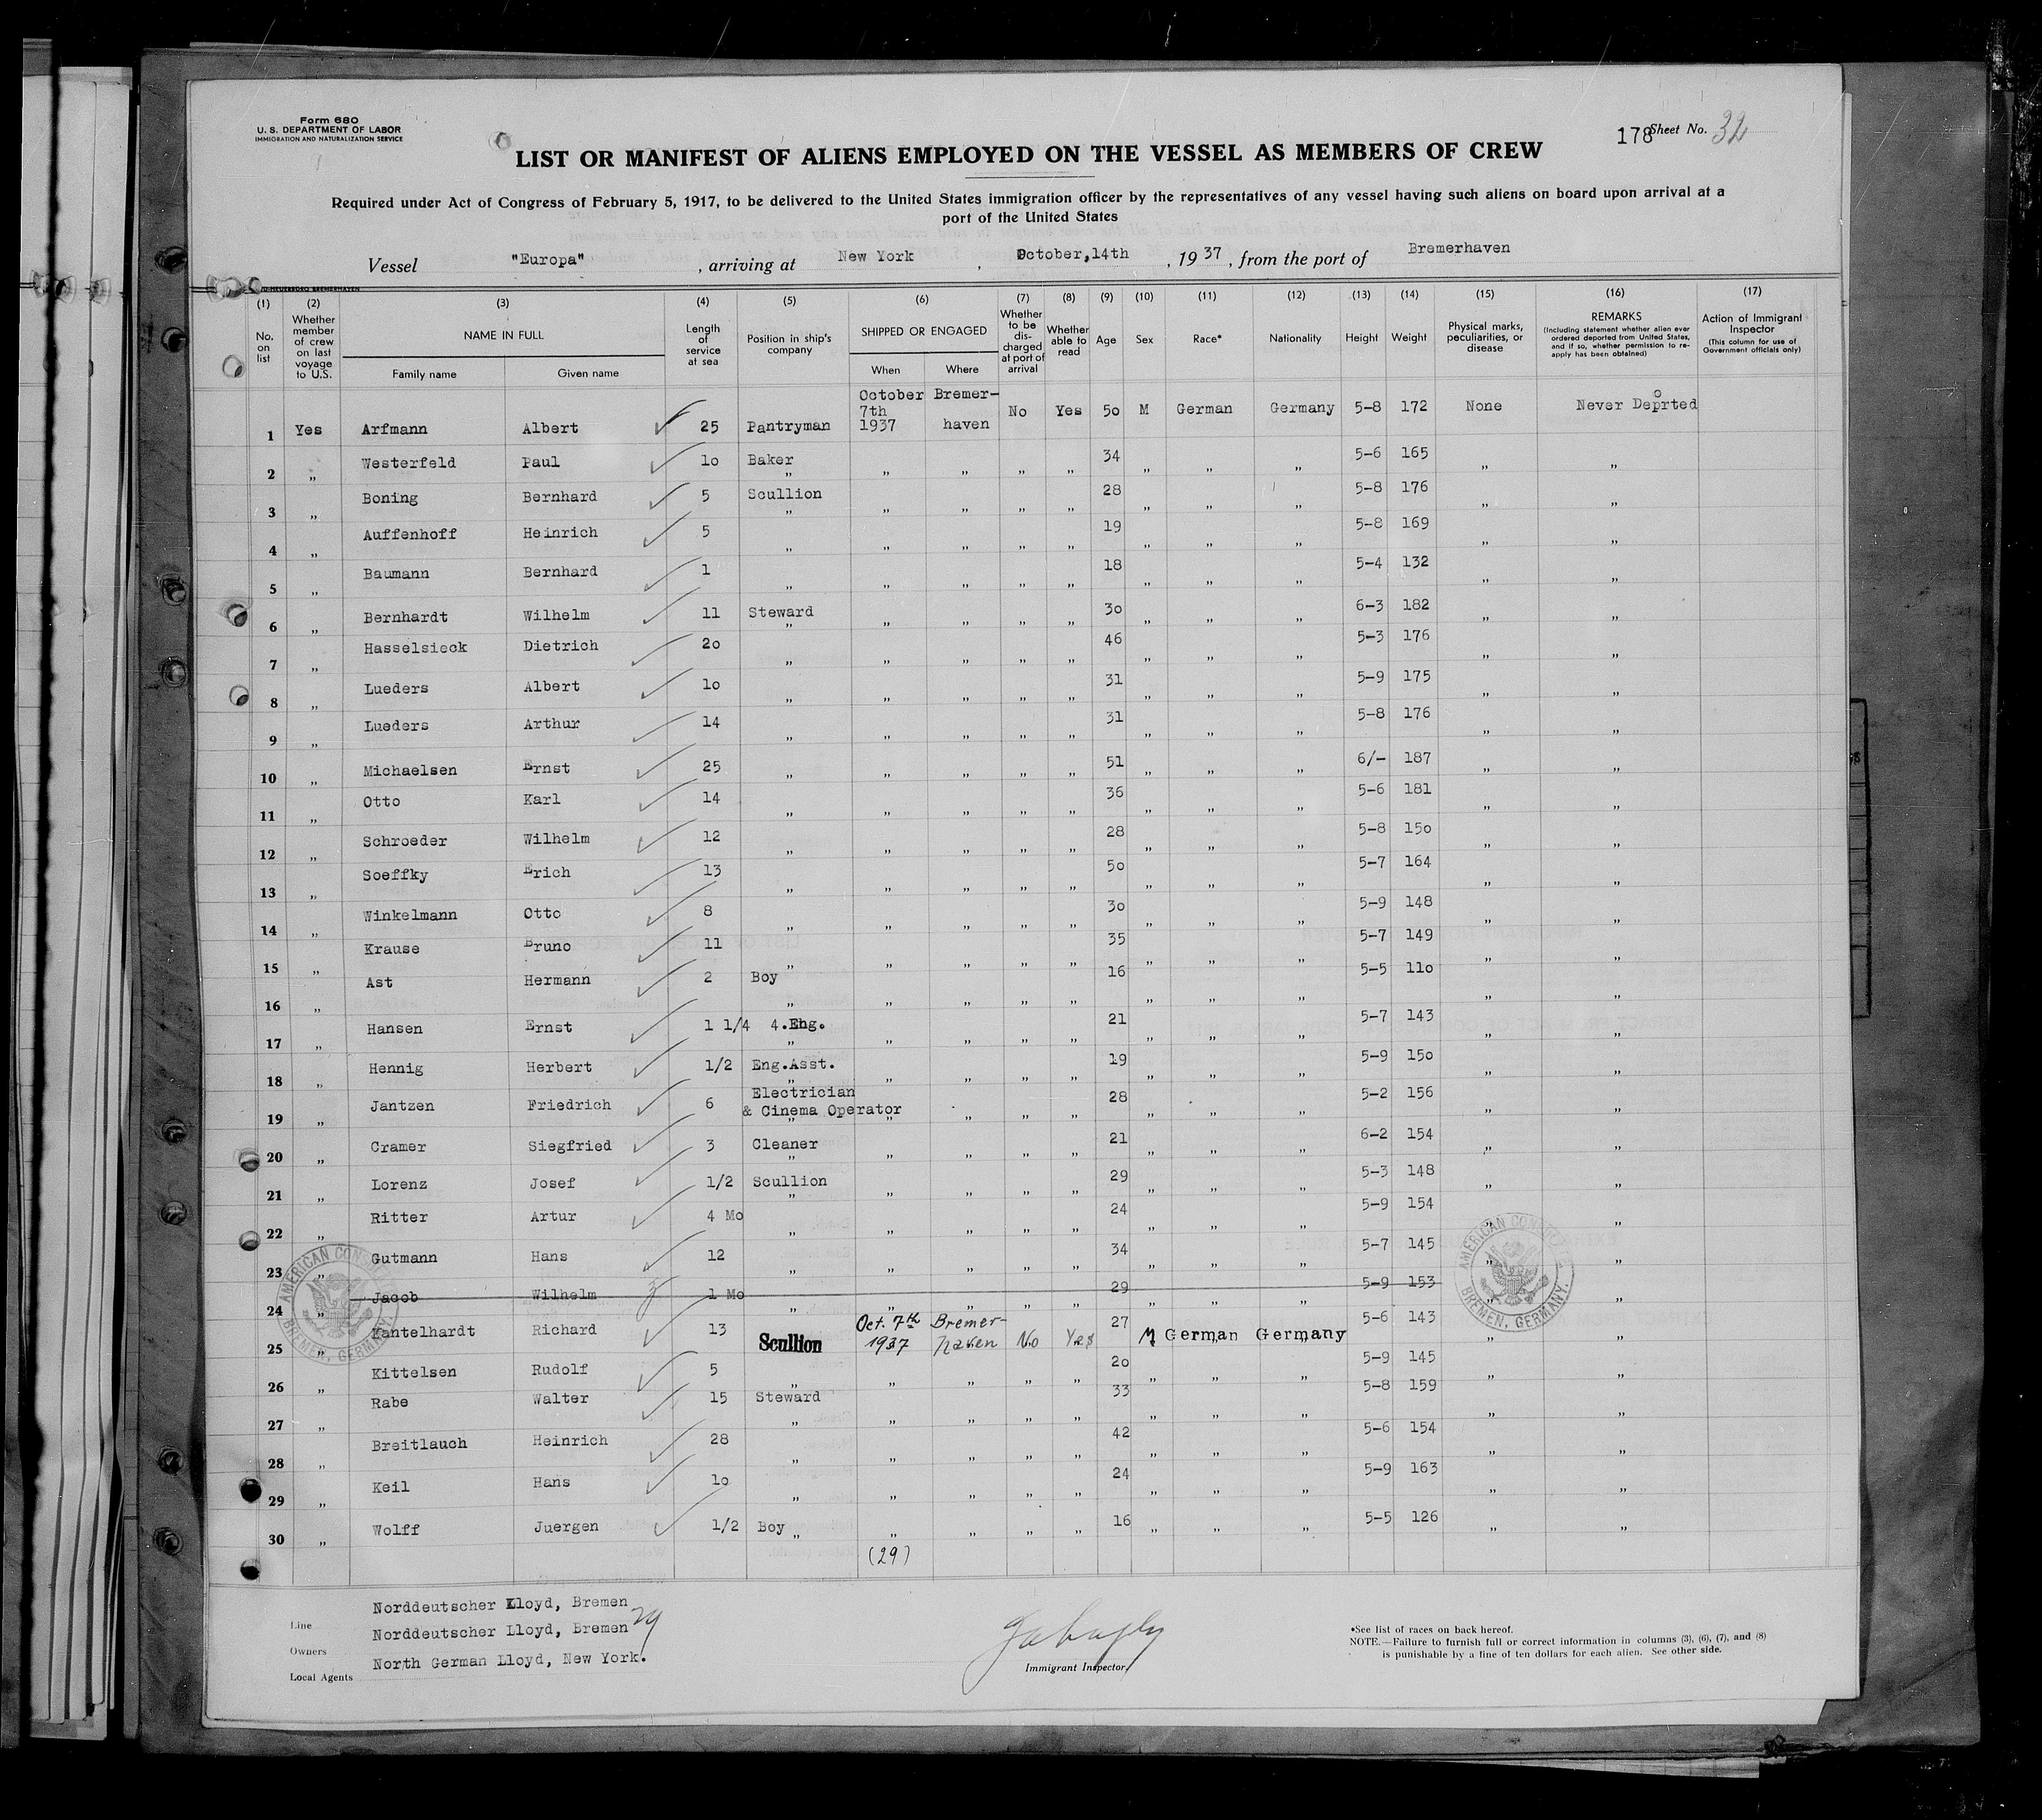 Form 680
U. S. DEPARTMENT OF LABOR
IMMIGRATION AND NATURALIZATION SERVICE
178 Sheet No. 32
LIST OR MANIFEST OF ALIENS EMPLOYED ON THE VESSEL AS MEMBERS OF CREW
Required under Act of Congress of February 5, 1917, to be delivered to the United States immigration officer by the representatives of any vessel having such aliens on board upon arrival at a
port of the United States
Vessel "Europa", arriving at New York, October,14th, 1937, from the port of Bremerhaven
(1) (2) (3) (4) (5) (6) (7) (8) (9) (10) (11) (12) (13) (14) (15) (16) (17)
No. on list
Whether member of crew on last voyage to U.S.
NAME IN FULL
Family name Given name
Length of service at sea
Position in ship's company
SHIPPED OR ENGAGED
When Where
Whether to be dis-charged at port of arrival
Whether able to read
Age Sex Race* Nationality Height Weight
Physical marks, peculiarities, or disease
REMARKS
(Including statement whether alien ever ordered deported from United States, and if so, whether permission to re-apply has been obtained)
Action of Immigrant Inspector
(This column for use of Government officials only)
1 Yes Arfmann Albert 25 Pantryman October 7th 1937 Bremer-haven No Yes 5o M German Germany 5-8 172 None Never Deprted
2 „ Westerfeld Paul 1o Baker „ „ „ „ „ 34 „ „ „ 5-6 165 „ „
3 „ Boning Bernhard 5 Scullion „ „ „ „ „ 28 „ „ „ 5-8 176 „ „
4 „ Auffenhoff Heinrich 5 „ „ „ „ „ 19 „ „ „ 5-8 169 „ „
5 „ Baumann Bernhard 1 „ „ „ „ „ 18 „ „ „ 5-4 132 „ „
6 „ Bernhardt Wilhelm 11 Steward „ „ „ „ „ 3o „ „ „ 6-3 182 „ „
7 „ Hasselsieck Dietrich 2o „ „ „ „ „ 46 „ „ „ 5-3 176 „ „
8 „ Lueders Albert 1o „ „ „ „ „ 31 „ „ „ 5-9 175 „ „
9 „ Lueders Arthur 14 „ „ „ „ „ 31 „ „ „ 5-8 176 „ „
10 „ Michaelsen Ernst 25 „ „ „ „ „ 51 „ „ „ 6/- 187 „ „
11 „ Otto Karl 14 „ „ „ „ „ 36 „ „ „ 5-6 181 „ „
12 „ Schroeder Wilhelm 12 „ „ „ „ „ 28 „ „ „ 5-8 15o „ „
13 „ Soeffky Erich 13 „ „ „ „ „ 5o „ „ „ 5-7 164 „ „
14 „ Winkelmann Otto 8 „ „ „ „ „ 3o „ „ „ 5-9 148 „ „
15 „ Krause Bruno 11 „ „ „ „ „ 35 „ „ „ 5-7 149 „ „
16 „ Ast Hermann 2 Boy „ „ „ „ „ 16 „ „ „ 5-5 11o „ „
17 „ Hansen Ernst 1 1/4 4.Eng. „ „ „ „ „ 21 „ „ „ 5-7 143 „ „
18 „ Hennig Herbert 1/2 Eng.Asst. „ „ „ „ „ 19 „ „ „ 5-9 15o „ „
19 „ Jantzen Friedrich 6 Electrician & Cinema Operator „ „ „ „ „ 28 „ „ „ 5-2 156 „ „
20 „ Cramer Siegfried 3 Cleaner „ „ „ „ „ 21 „ „ „ 6-2 154 „ „
21 „ Lorenz Josef 1/2 Scullion „ „ „ „ „ 29 „ „ „ 5-3 148 „ „
22 „ Ritter Artur 4 Mo „ „ „ „ „ 24 „ „ „ 5-9 154 „ „
23 „ Gutmann Hans 12 „ „ „ „ „ 34 „ „ „ 5-7 145 „ „
24 „ Jacob Wilhelm 1 Mo „ „ „ „ „ 29 „ „ „ 5-9 153 „ „
25 „ Kantelhardt Richard 13 Scullion Oct. 7th 1937 Bremer-haven No Yes 27 M German Germany 5-6 143 „ „
26 „ Kittelsen Rudolf 5 „ „ „ „ „ 2o „ „ „ 5-9 145 „ „
27 „ Rabe Walter 15 Steward „ „ „ „ „ 33 „ „ „ 5-8 159 „ „
28 „ Breitlauch Heinrich 28 „ „ „ „ „ 42 „ „ „ 5-6 154 „ „
29 „ Keil Hans 1o „ „ „ „ „ 24 „ „ „ 5-9 163 „ „
30 „ Wolff Juergen 1/2 Boy „ „ „ „ „ 16 „ „ „ 5-5 126 „ „
(29)
AMERICAN CONSULATE BREMEN, GERMANY.
AMERICAN CONSULATE BREMEN, GERMANY.
Line Norddeutscher Lloyd, Bremen
Owners Norddeutscher Lloyd, Bremen 29
Local Agents North German Lloyd, New York.
Immigrant Inspector
*See list of races on back hereof.
NOTE.—Failure to furnish full or correct information in columns (3), (6), (7), and (8)
is punishable by a fine of ten dollars for each alien. See other side.